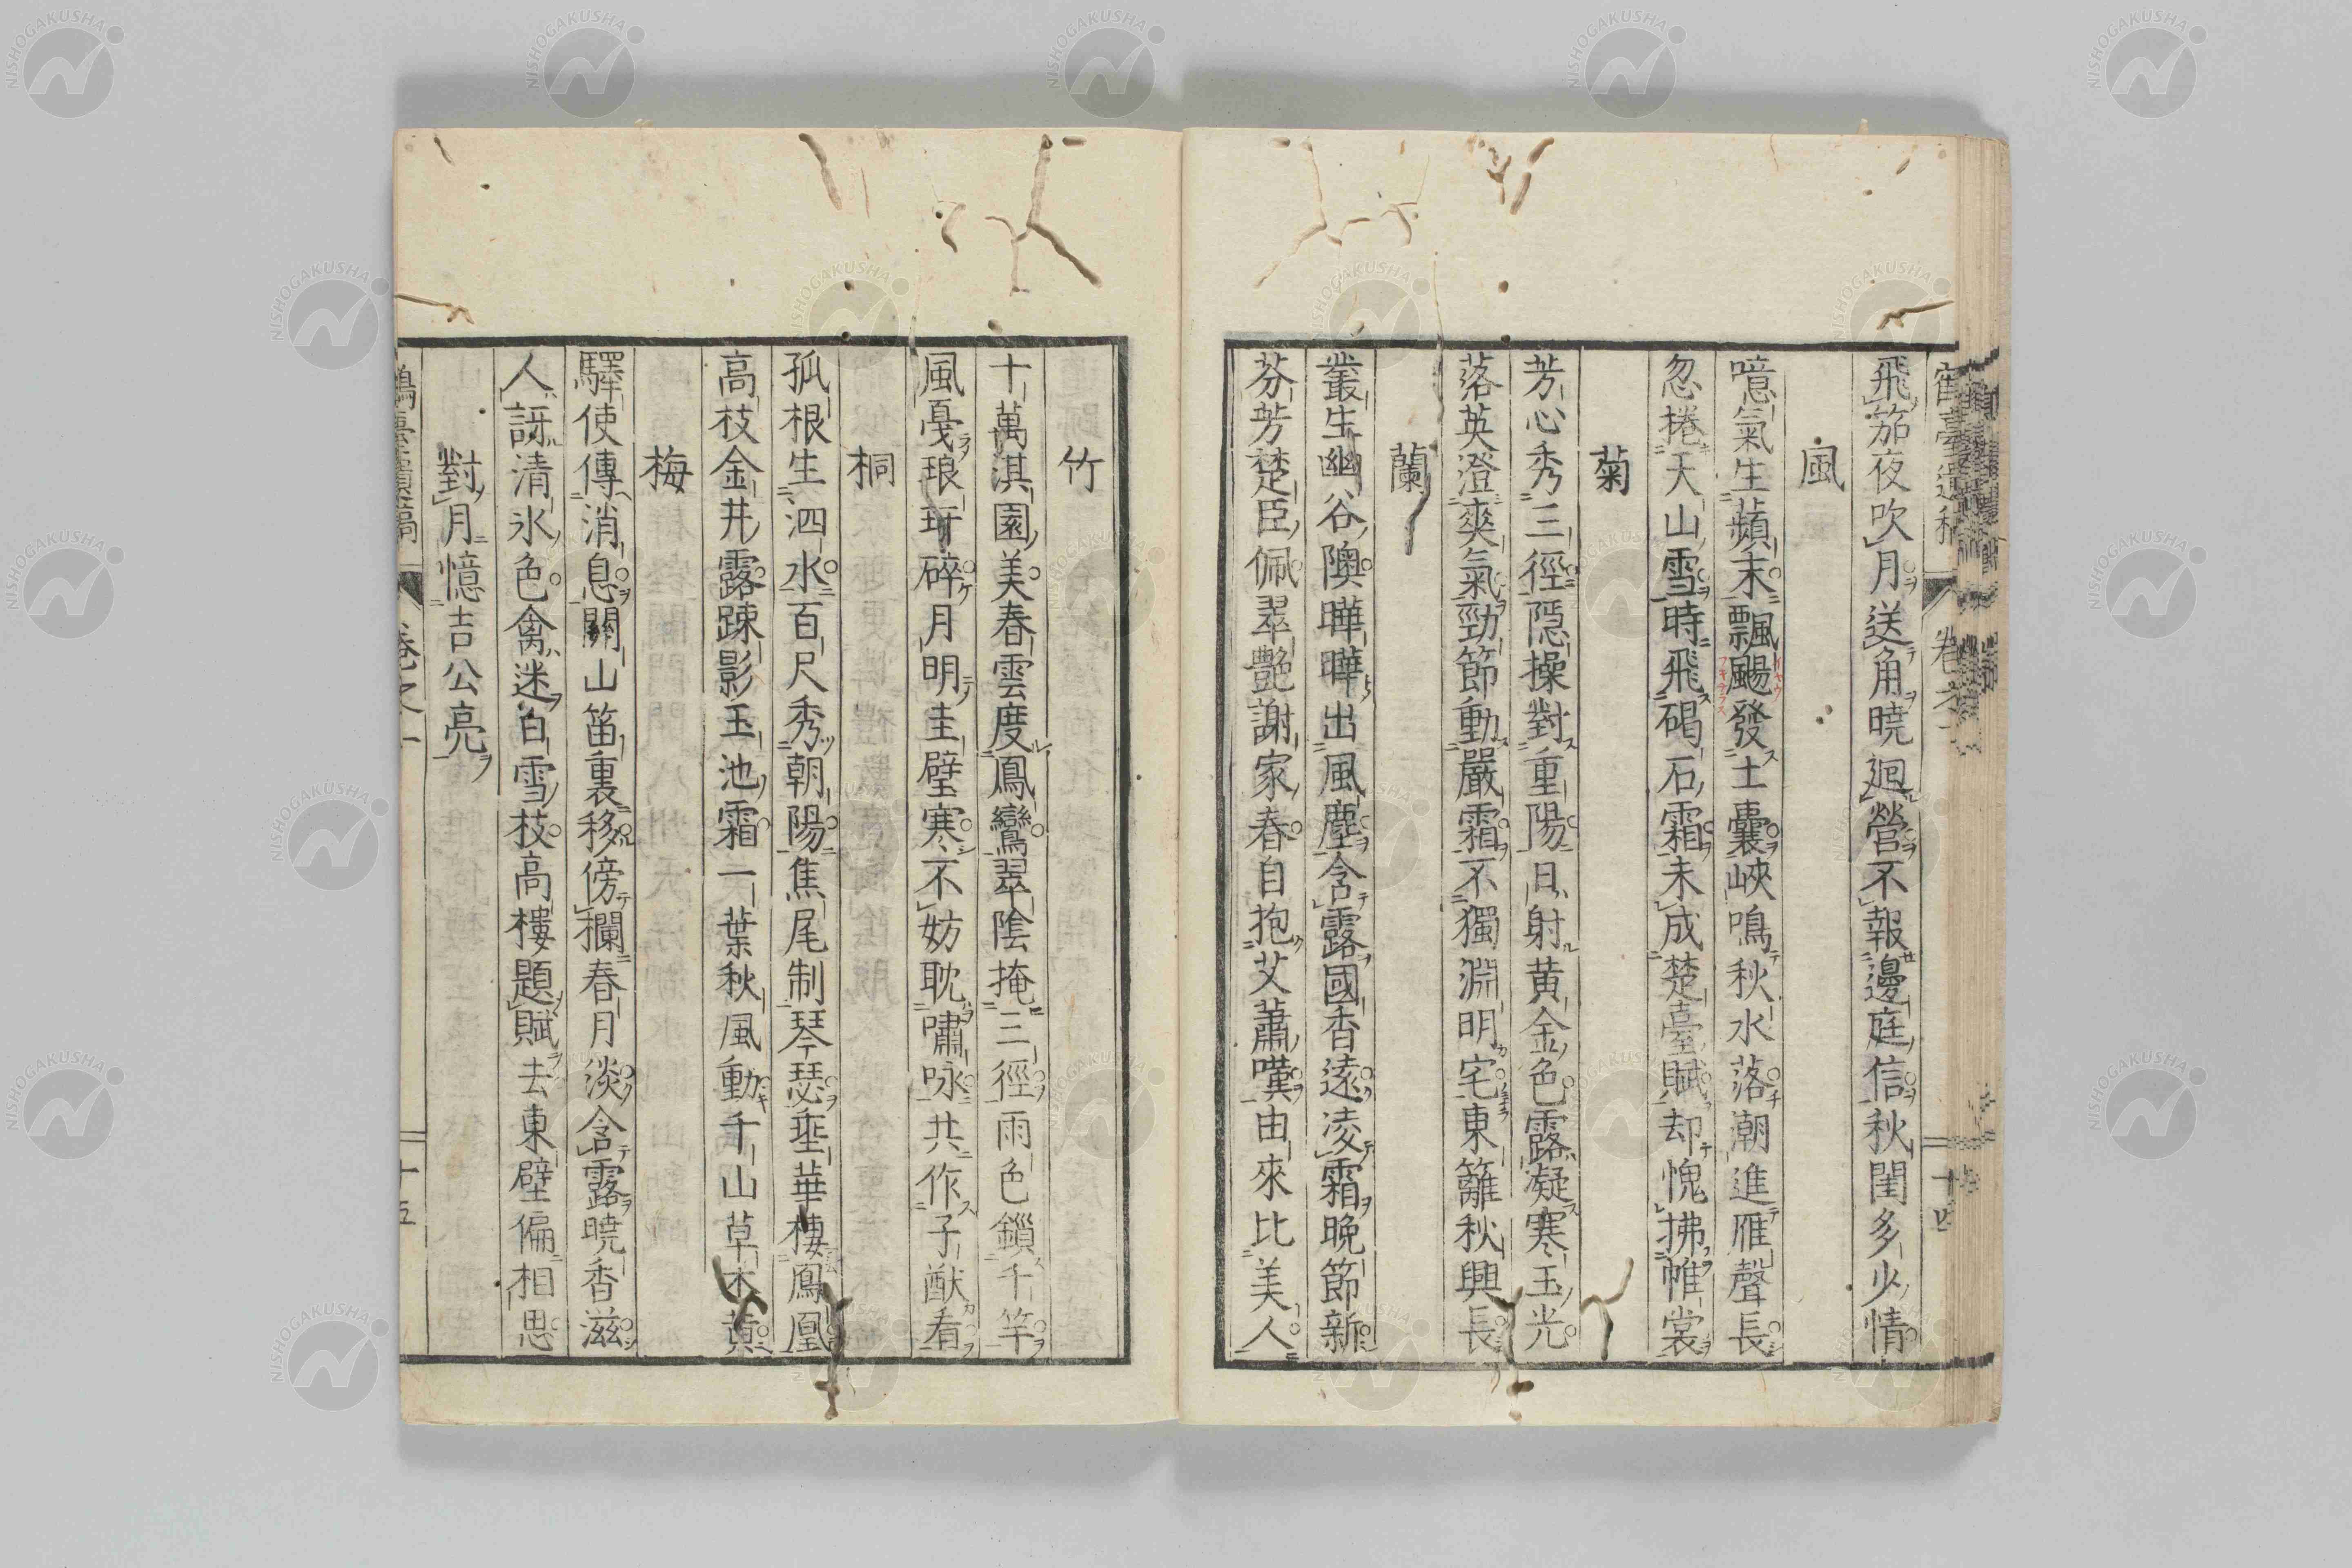 飛笳夜吹月送角曉廻營不報邊庭信秋閨多少情
風
噫氣生蘋末飄颺發土囊峽鳴秋水落潮進雁聲長
忽捲天山雪時飛碣石霜未成楚臺賦却愧拂帷裳
菊
芳心秀三徑隱操對重陽日射黃金色露凝寒玉光
落英澄爽氣勁節動嚴霜不獨淵明宅東籬秋興長
蘭
叢生幽谷隩曄曄出風塵含露國香遠凌霜晚節新
芬芳楚臣佩翠艷謝家春自抱艾蕭嘆由來比美人
竹
十萬淇園美春雲度鳳鸞翠陰掩三徑雨色鎖千竿
風戞琅玕碎月明圭璧寒不妨耽嘯咏共作子猷看
桐
孤根生泗水百尺秀朝陽焦尾制琴瑟垂華棲鳳凰
高枝金井露踈影玉池霜一葉秋風動千山草木黃
梅
驛使傳消息關山笛裏移傍欄春月淡含露曉香滋
人訝清氷色禽迷白雪枝高樓題賦去東壁偏相思
對月憶吉公亮
卷之一
十五
十四
NISHOGAKUSHA